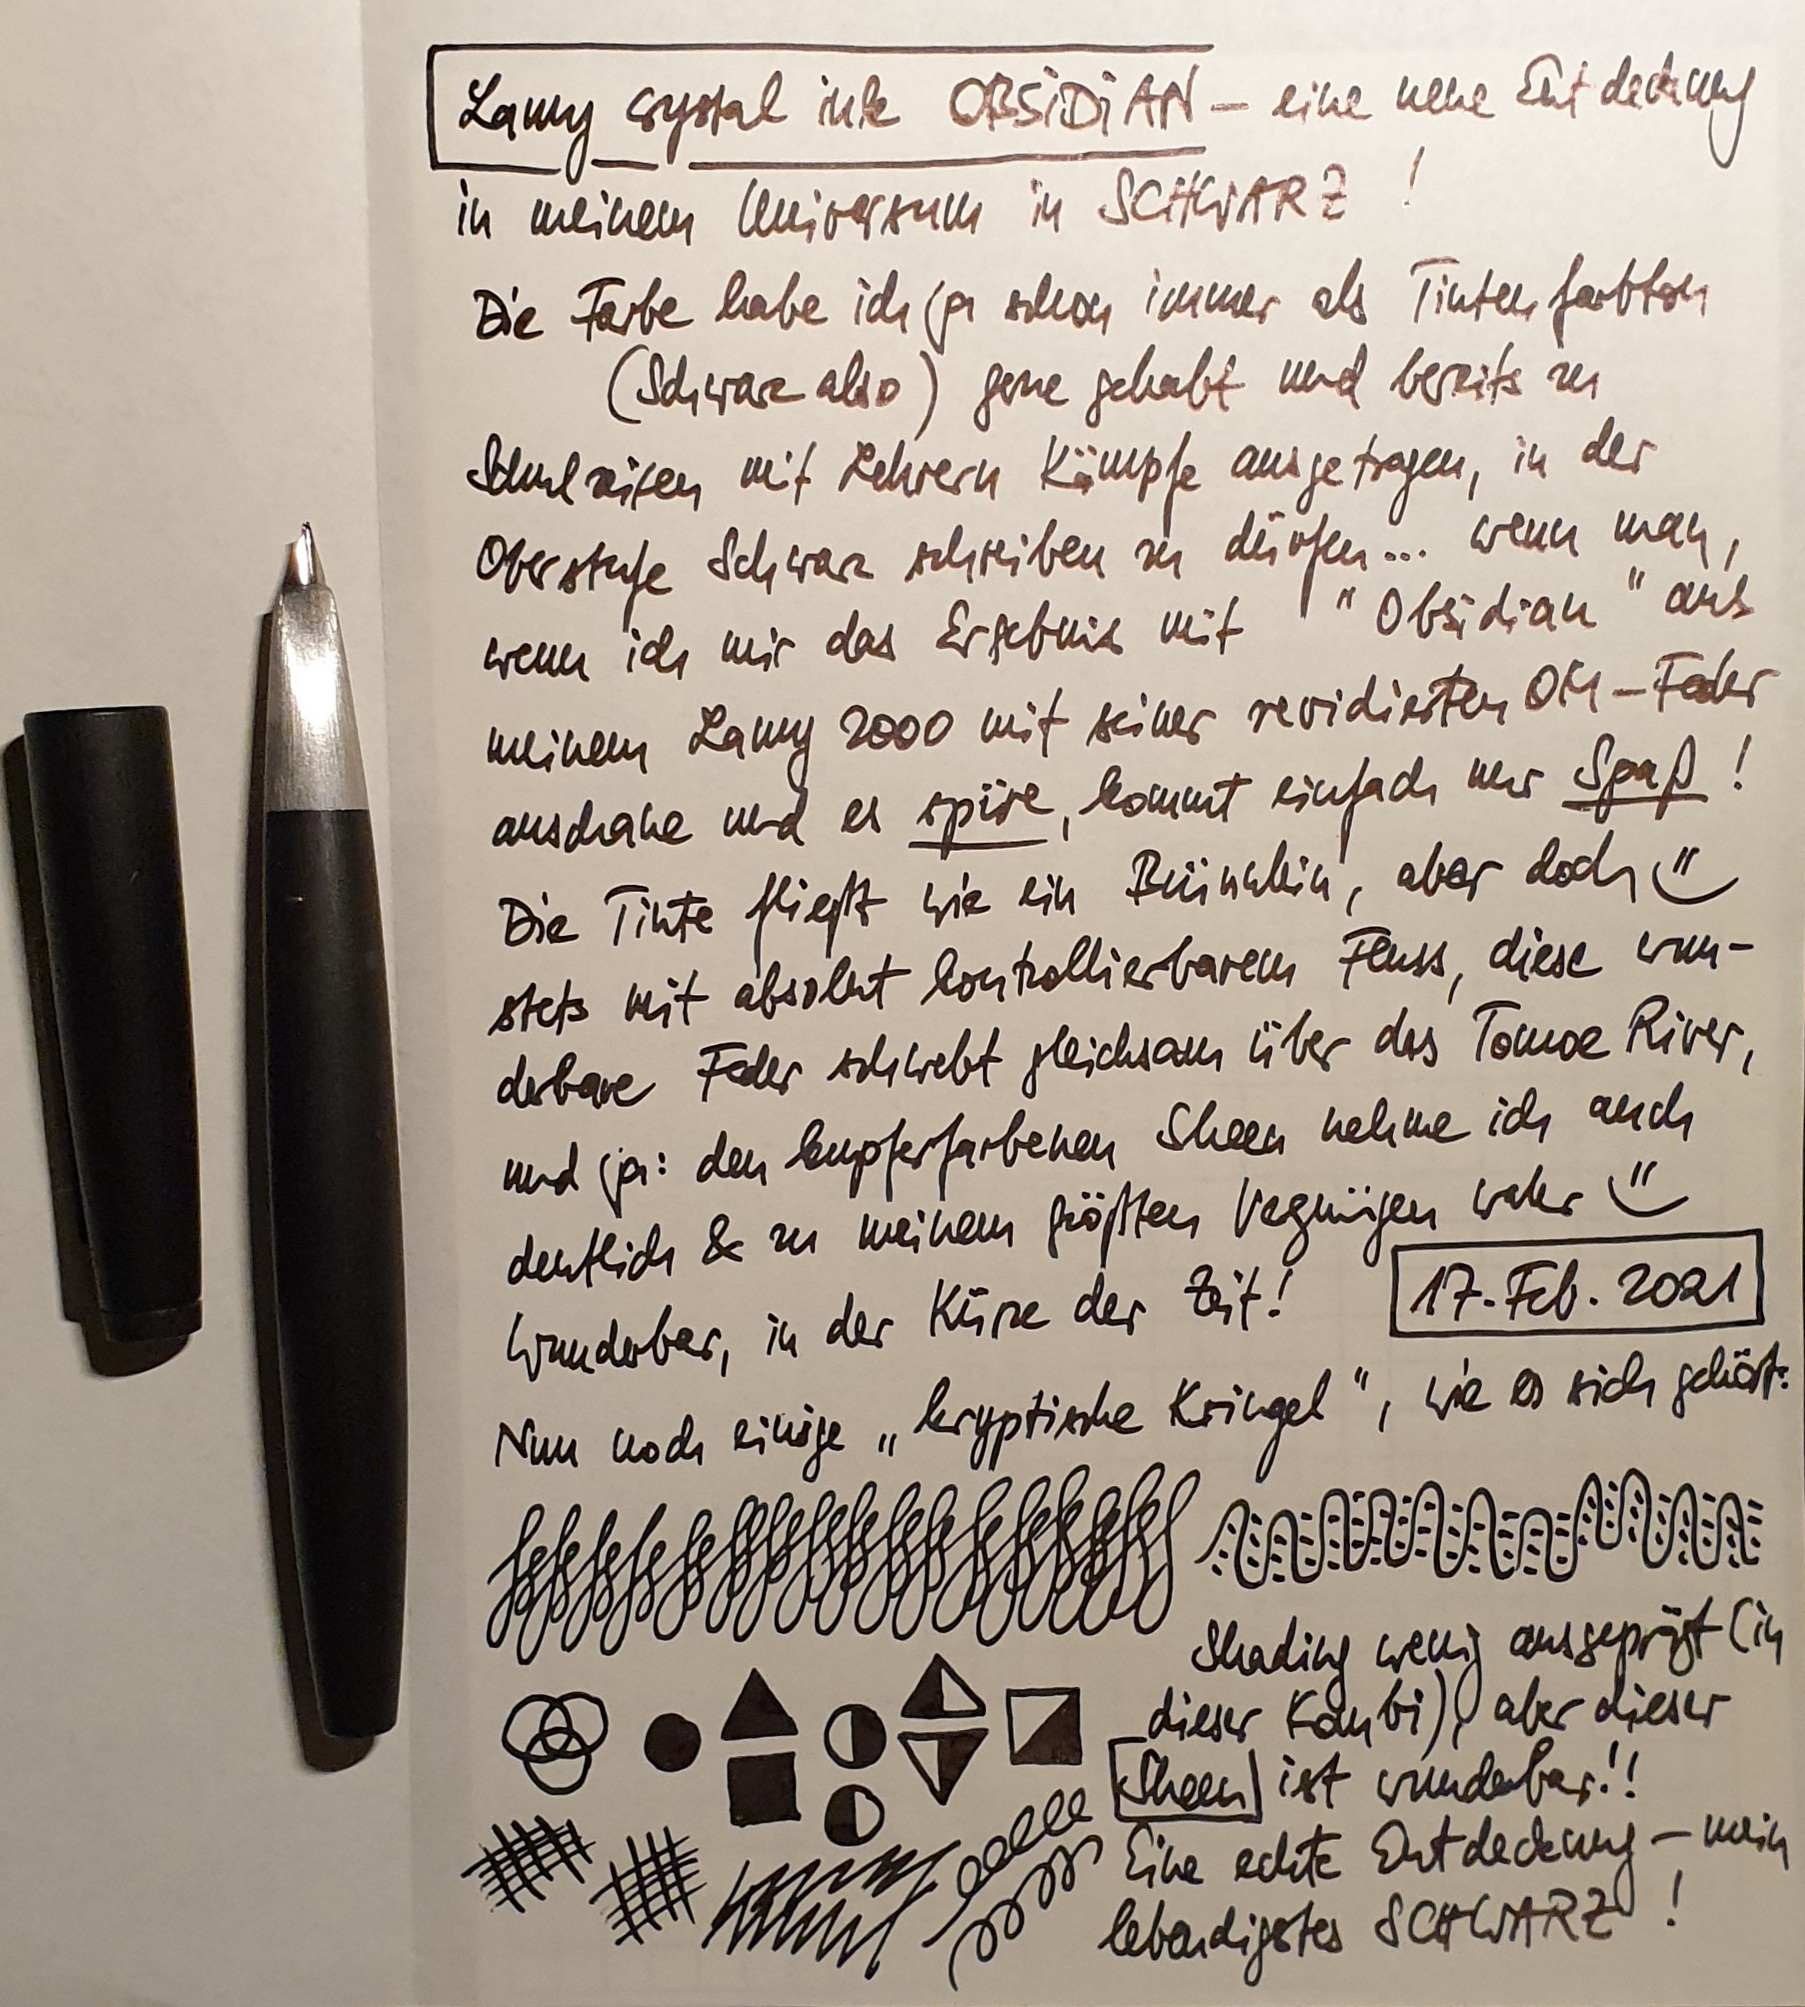 Lamy crystal ink OBSiDiAN – eine neue Entdeckung
in meinem Universum in SCHWARZ !
Die Farbe habe ich ja schon immer als Tintenfarbton
(Schwarz also) gerne gehabt und bereits zu
Schulzeiten mit Lehrern Kämpfe ausgetragen, in der
Oberstufe Schwarz schreiben zu dürfen... wenn man,
wenn ich mir das Ergebnis mit "Obsidian" aus
meinem Lamy 2000 mit seiner revidierten OM-Feder
anschaue und es spüre, kommt einfach nur Spaß !
Die Tinte fließt wie ein Brünnlein, aber doch
stets mit absolut kontrollierbarem Fluss, diese wun-
derbare Feder schwebt gleichsam über das Tomoe River,
und ja: den kupferfarbenen Sheen nehme ich auch
deutlich & zu meinem größten Vergnügen wahr
Wunderbar, in der Kürze der Zeit!
17. Feb. 2021
Nun noch einige „kryptische Kringel", wie es sich gehört:
Shading wenig ausgeprägt (in
dieser Kombi), aber dieser
Sheen ist wunderbar!!
Eine echte Entdeckung – mein
lebendigstes SCHWARZ !